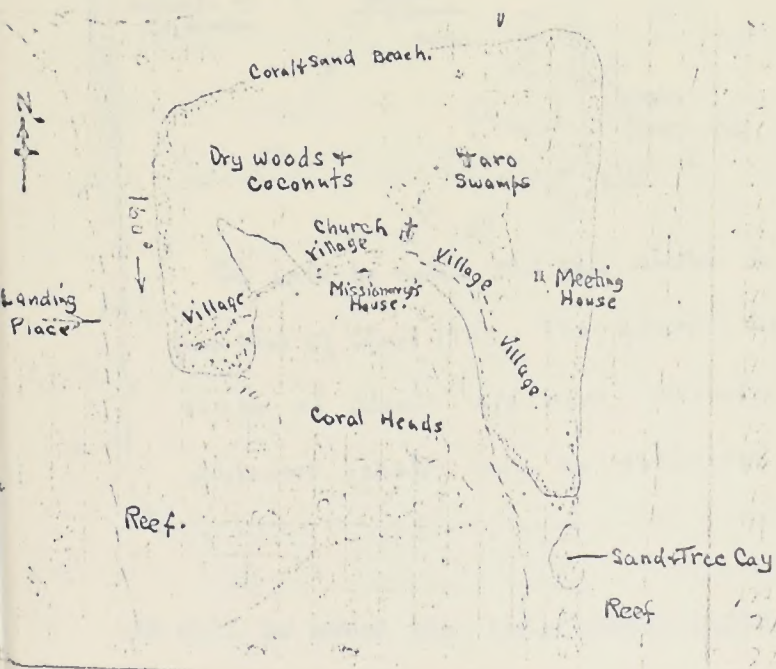 Coral & Sand Beach.
N
Dry Woods &
Coconuts
Taro
Swamps
Church
Village
Village
Meeting
House
Missionary's
House.
Landing
Place
Village
Village
Coral Heads
Reef.
Sand & Tree Cay
Reef